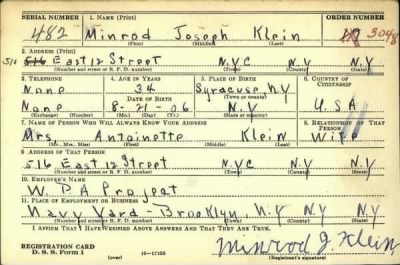 SERIAL NUMBER 1. NAME (Print) ORDER NUMBER
482 Minrod Joseph Klein 3048
(First) (Middle) (Last)
2. ADDRESS (Print)
516 516 East 12 Street N.Y.C N.Y N.Y
(Number and street or R. F. D. number) (Town) (County) (State)
3. TELEPHONE 4. AGE IN YEARS 5. PLACE OF BIRTH 6. COUNTRY OF CITIZENSHIP
None 34 Syracuse N.Y
DATE OF BIRTH (Town or county)
None 8-21-06 N.Y U S A
(Exchange) (Number) (Mo.) (Day) (Yr.) (State or country)
7. NAME OF PERSON WHO WILL ALWAYS KNOW YOUR ADDRESS 8. RELATIONSHIP OF THAT PERSON
Mrs. Antoinette Klein Wife
(Mr., Mrs., Miss) (First) (Middle) (Last)
9. ADDRESS OF THAT PERSON
516 East 12 Street N.Y.C N.Y N.Y
(Number and street or R. F. D. number) (Town) (County) (State)
10. EMPLOYER'S NAME
W. P A Project
11. PLACE OF EMPLOYMENT OR BUSINESS
Navy Yard Brooklyn N.Y N.Y
(Number and street or R. F. D. number) (Town) (County) (State)
I AFFIRM THAT I HAVE VERIFIED ABOVE ANSWERS AND THAT THEY ARE TRUE.
REGISTRATION CARD
D. S. S. Form 1 (over) 16-17105 Minrod J. Klein
(Registrant's signature)